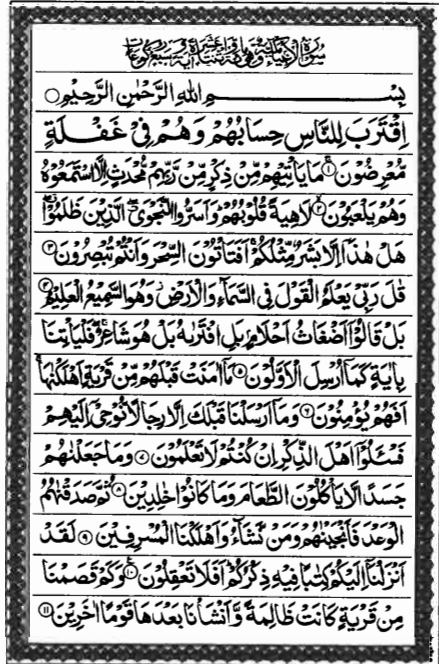 سُوْرَةُ الْاَنْبِيَاءِ مَكِّيَّةٌ وَّهِيَ
بِسْمِ اللهِ الرَّحْمٰنِ الرَّحِيْمِ ○
اِقْتَرَبَ لِلنَّاسِ حِسَابُهُمْ وَهُمْ فِيْ غَفْلَةٍ
مُّعْرِضُوْنَ ۚ‏﴿۱﴾ مَا يَاْتِيْهِمْ مِّنْ ذِكْرٍ مِّنْ رَّبِّهِمْ مُّحْدَثٍ اِلَّا اسْتَمَعُوْهُ
وَهُمْ يَلْعَبُوْنَ ۙ‏﴿۲﴾ لَاهِيَةً قُلُوْبُهُمْ ؕ وَاَسَرُّوا النَّجْوَى ۖۗ الَّذِيْنَ ظَلَمُوْا ۖۗ
هَلْ هٰذَآ اِلَّا بَشَرٌ مِّثْلُكُمْ ۚ اَفَتَاْتُوْنَ السِّحْرَ وَاَنْتُمْ تُبْصِرُوْنَ ﴿۳﴾
قٰلَ رَبِّيْ يَعْلَمُ الْقَوْلَ فِي السَّمَآءِ وَالْاَرْضِ ز وَهُوَ السَّمِيْعُ الْعَلِيْمُ ﴿۴﴾
بَلْ قَالُوْٓا اَضْغَاثُ اَحْلَامٍۭ بَلِ افْتَرٰىهُ بَلْ هُوَ شَاعِرٌ ۖۚ فَلْيَاْتِنَا
بِاٰيَةٍ كَمَآ اُرْسِلَ الْاَوَّلُوْنَ ﴿۵﴾ مَآ اٰمَنَتْ قَبْلَهُمْ مِّنْ قَرْيَةٍ اَهْلَكْنٰهَا ۚ
اَفَهُمْ يُؤْمِنُوْنَ ﴿۶﴾ وَمَآ اَرْسَلْنَا قَبْلَكَ اِلَّا رِجَالًا نُّوْحِيْٓ اِلَيْهِمْ
فَسْـَٔلُوْٓا اَهْلَ الذِّكْرِ اِنْ كُنْتُمْ لَا تَعْلَمُوْنَ ﴿۷﴾ وَمَا جَعَلْنٰهُمْ
جَسَدًا لَّا يَاْكُلُوْنَ الطَّعَامَ وَمَا كَانُوْا خٰلِدِيْنَ ﴿۸﴾ ثُمَّ صَدَقْنٰهُمُ
الْوَعْدَ فَاَنْجَيْنٰهُمْ وَمَنْ نَّشَآءُ وَاَهْلَكْنَا الْمُسْرِفِيْنَ ﴿۹﴾ لَقَدْ
اَنْزَلْنَآ اِلَيْكُمْ كِتٰبًا فِيْهِ ذِكْرُكُمْ ؕ اَفَلَا تَعْقِلُوْنَ ﴿۱۰﴾ وَكَمْ قَصَمْنَا
مِنْ قَرْيَةٍ كَانَتْ ظَالِمَةً وَّاَنْشَاْنَا بَعْدَهَا قَوْمًا اٰخَرِيْنَ ﴿۱۱﴾